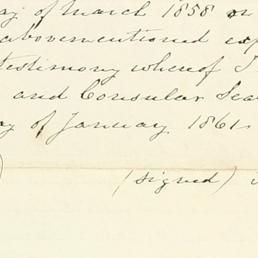 of March 1858 on
abovementioned
testimony whereof I
and Consular Seal
of January 1861.
(Signed)